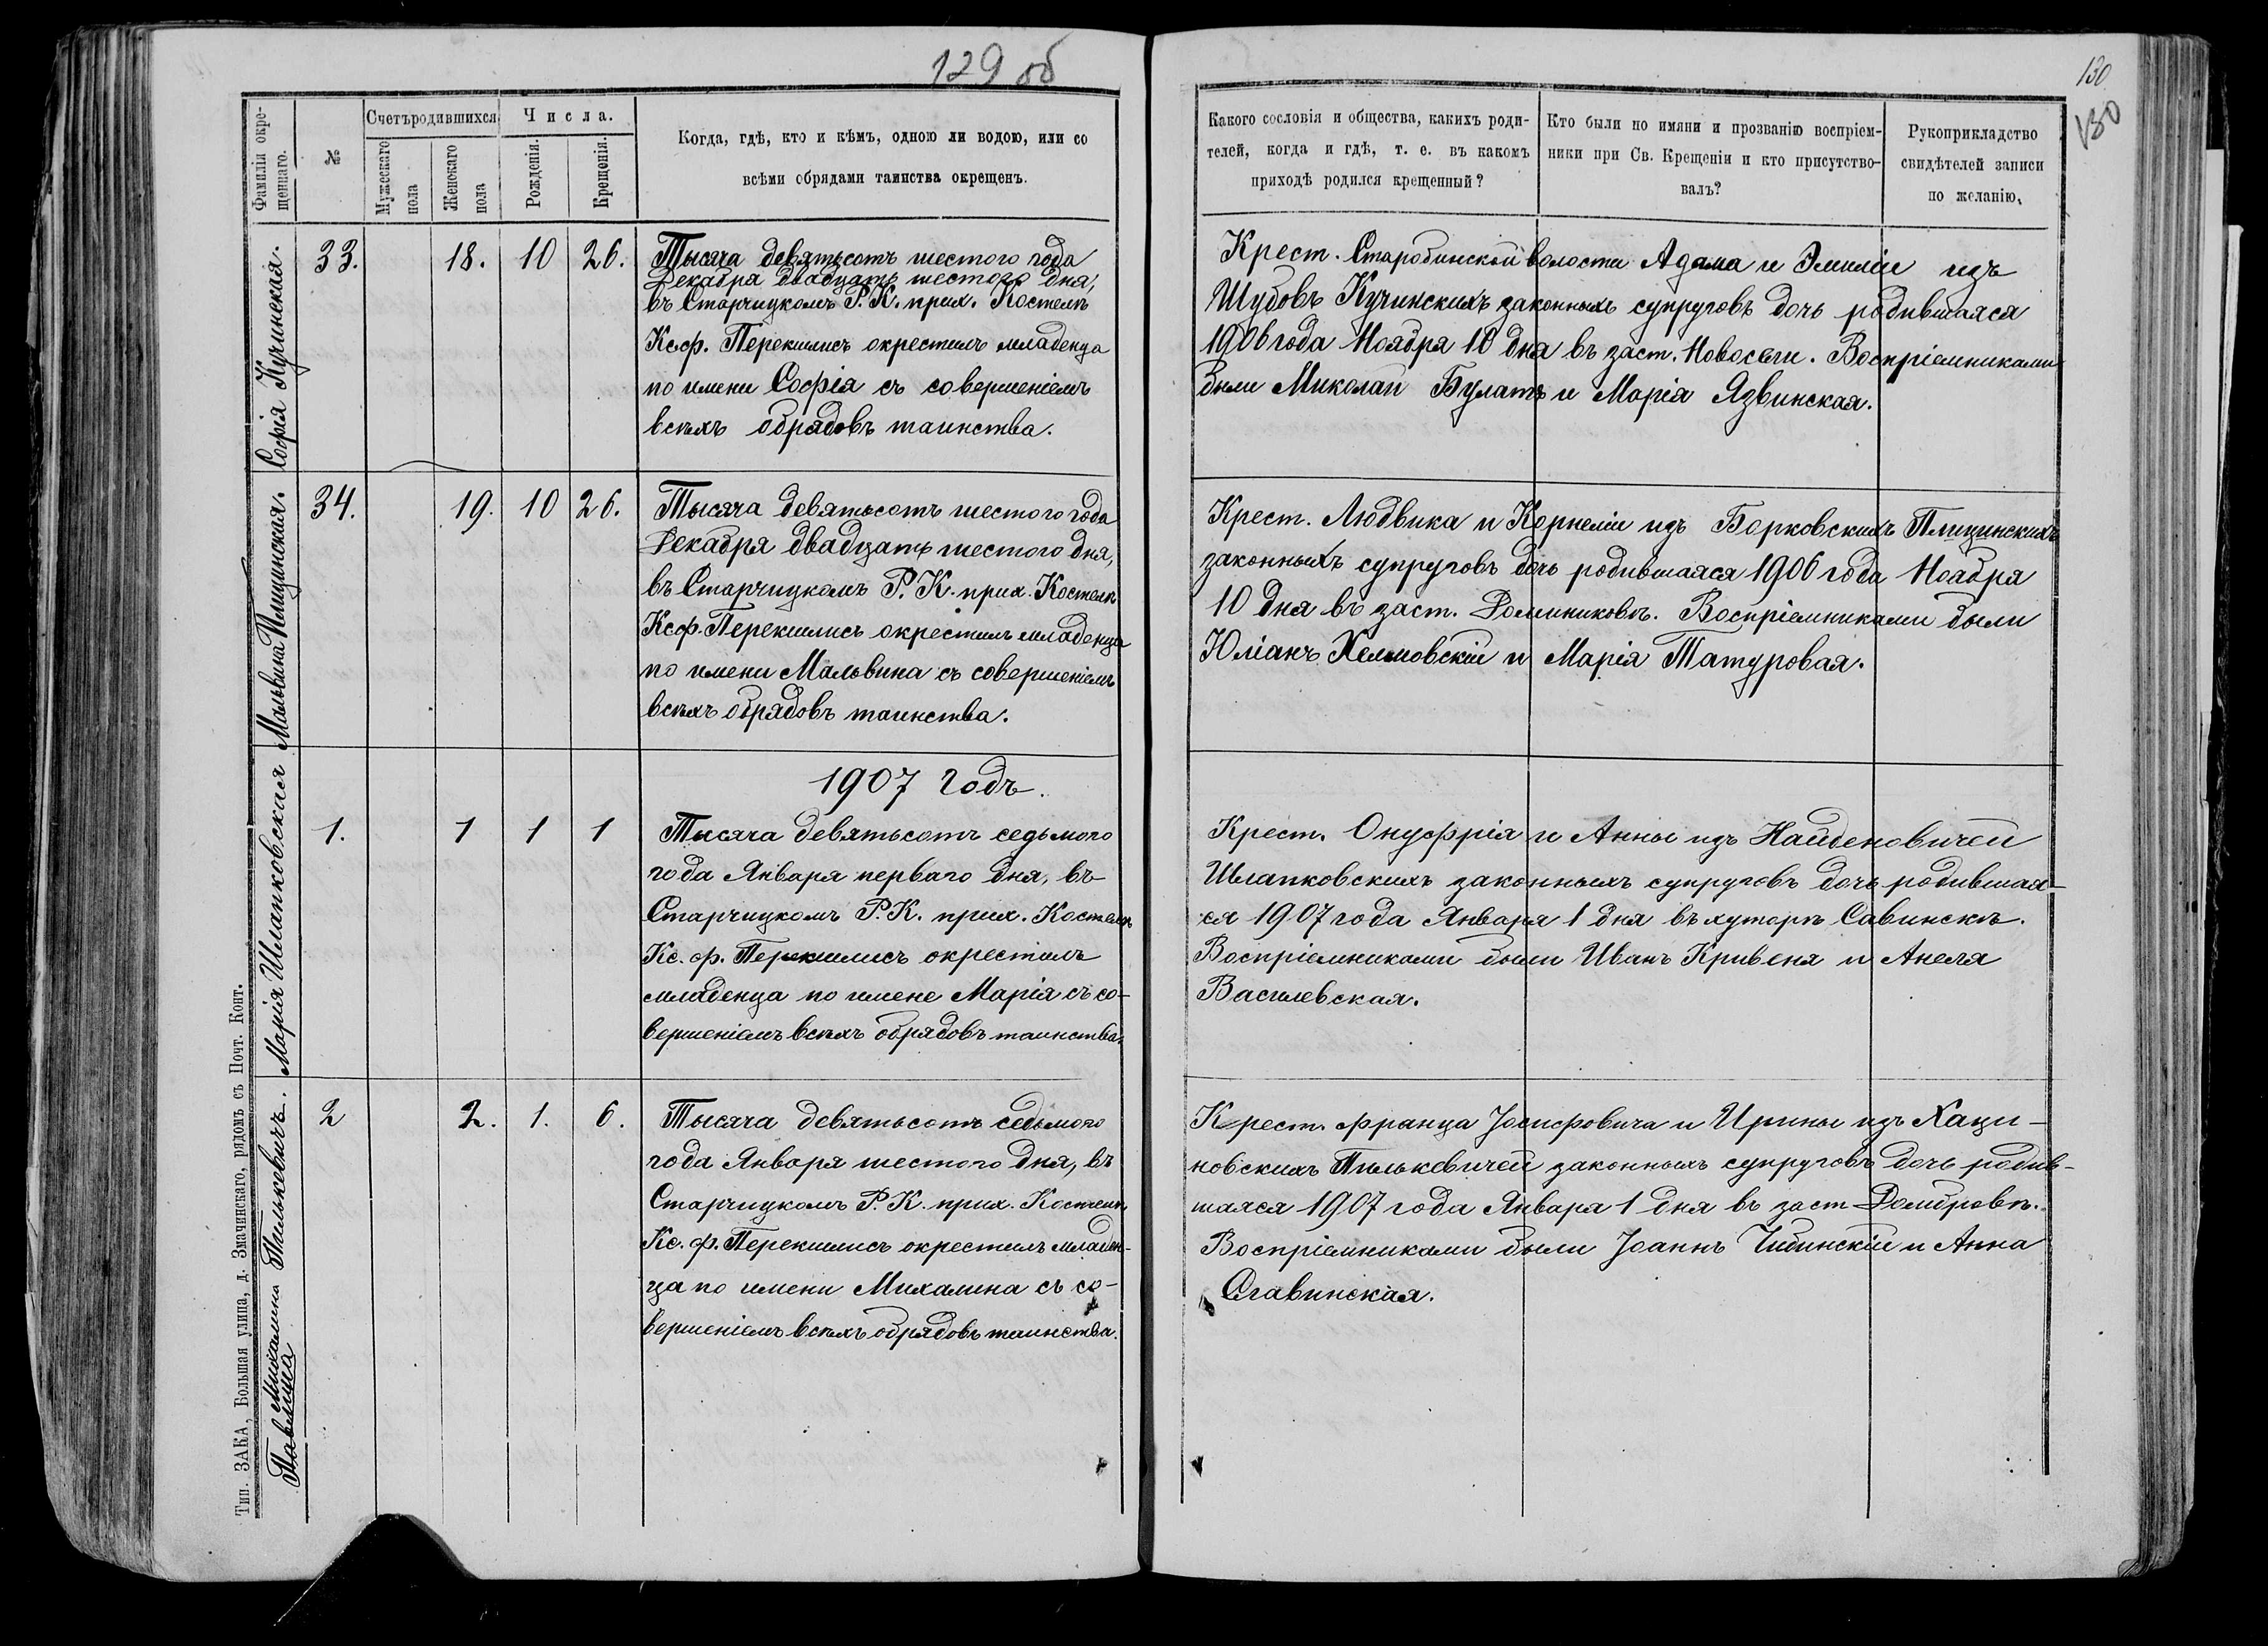 129 об
130
130
Фамилія окрещеннаго.
№
Счетъ родившихся
Мужескаго пола
Женскаго пола
Числа.
Рожденія.
Крещенія.
Когда, гдѣ, кто и кѣмъ, одною ли водою, или со
всѣми обрядами таинства окрещенъ.
Какого сословія и общества, какихъ роди-
телей, когда и гдѣ, т. е. въ какомъ
приходѣ родился крещенный?
Кто были по имяни и прозванію воспріем-
ники при Св. Крещеніи и кто присутство-
валъ?
Рукоприкладство
свидѣтелей записи
по желанію.
Софія Кучинская.
33.
18.
10
26.
Тысяча девятьсотъ шестого года
Декабря двадцать шестого дня,
въ Старчицкомъ Р. К. прих. Костелѣ
Ксф. Перекшлисъ окрестилъ младенца
по имени Софія съ совершеніемъ
всѣхъ обрядовъ таинства.
Крест. Старобинской волости Адама и Эмиліи изъ
Шубовъ Кучинскихъ законныхъ супруговъ дочь родившаяся
1906 года Ноября 10 дня въ заст. Новосели. Воспріемниками
были Миколай Булатъ и Марія Язвинская.
Мальвина Плищинская.
34.
19.
10
26.
Тысяча девятьсотъ шестого года
Декабря двадцать шестого дня,
въ Старчицкомъ Р. К. прих. Костелѣ
Ксф. Перекшлисъ окрестилъ младенца
по имени Мальвина съ совершеніемъ
всѣхъ обрядовъ таинства.
Крест. Людвика и Корнеліи изъ Борковскихъ Плищинскихъ
законныхъ супруговъ дочь родившаяся 1906 года Ноября
10 дня въ заст. Доминиковѣ. Воспріемниками были
Юліанъ Хелмовскій и Марія Татуровая.
1907 Годъ.
Марія Шлапковская
1.
1
1
1
Тысяча девятьсотъ седьмого
года Января перваго дня, въ
Старчицкомъ Р. К. прих. Костелѣ
Кс. ф. Перекшлисъ окрестилъ
младенца по имене Марія съ со-
вершеніемъ всѣхъ обрядовъ таинства.
Крест. Онуфрія и Анны изъ Найденовичей
Шлапковскихъ законныхъ супруговъ дочь родившая-
ся 1907 года Января 1 дня въ хуторѣ Савинскъ.
Воспріемниками были Иванъ Кривеня и Анеля
Василевская.
Михалина Пилькевичъ.
Павлина
2
2.
1.
6.
Тысяча девятьсотъ седьмого
года Января шестого дня, въ
Старчицкомъ Р. К. прих. Костелѣ
Кс. ф. Перекшлисъ окрестилъ младен-
ца по имени Михалина съ со-
вершеніемъ всѣхъ обрядовъ таинства.
Крест. Франца Іосифовича и Ирины изъ Хаци-
новскихъ Пилькевичей законныхъ супруговъ дочь родив-
шаяся 1907 года Января 1 дня въ заст Домбровѣ.
Воспріемниками были Іоаннъ Чибинскій и Анна
Славинская.
Тип. ЗАКА, Большая улица, д. Значинскаго, рядомъ съ Почт. Конт.